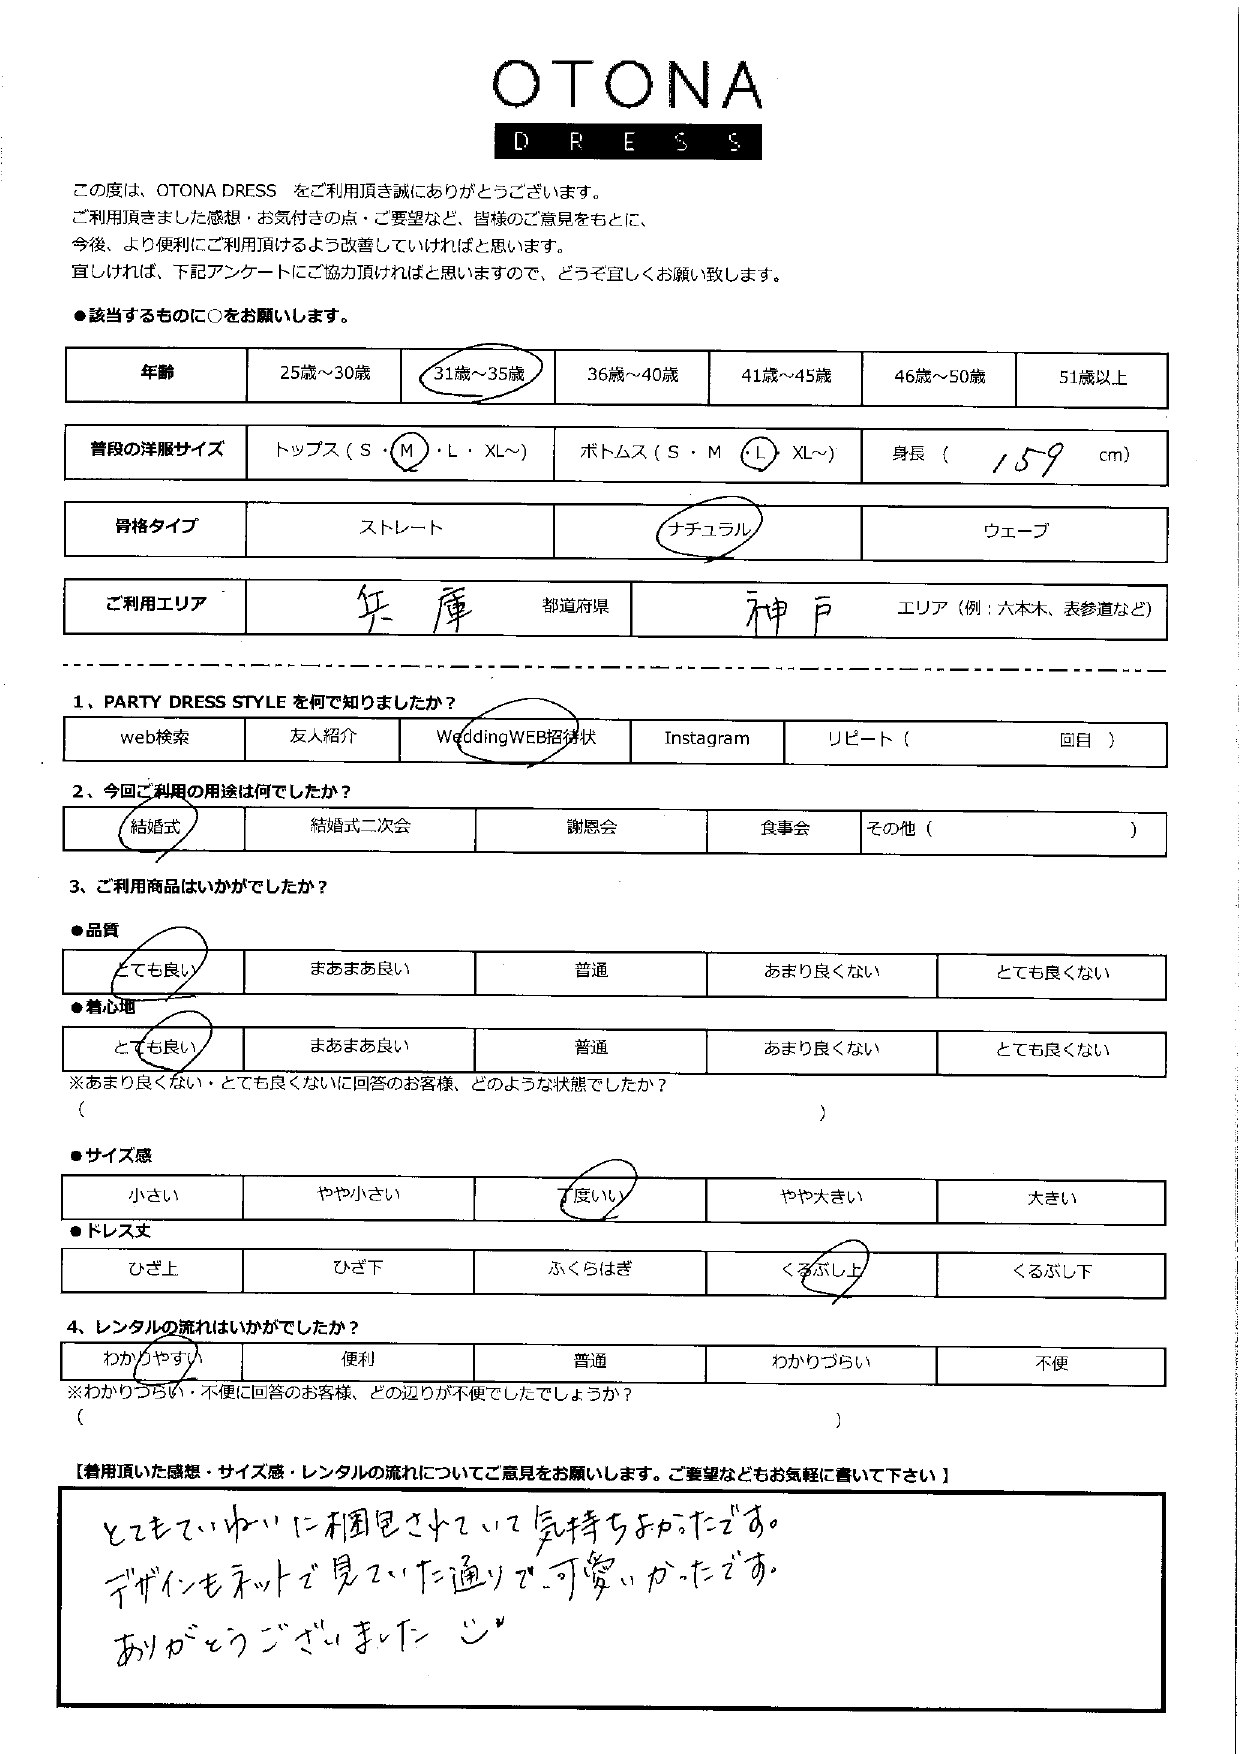 OTONA
DRESS
この度は、OTONA DRESS　をご利用頂き誠にありがとうございます。
ご利用頂きました感想・お気付きの点・ご要望など、皆様のご意見をもとに、
今後、より便利にご利用頂けるよう改善していければと思います。
宜しければ、下記アンケートにご協力頂ければと思いますので、どうぞ宜しくお願い致します。
●該当するものに○をお願いします。
年齢 25歳～30歳 31歳～35歳 36歳～40歳 41歳～45歳 46歳～50歳 51歳以上
普段の洋服サイズ トップス ( S ・ M ・ L ・ XL～) ボトムス ( S ・ M ・L・ XL～) 身長 ( 159 cm)
骨格タイプ ストレート ナチュラル ウェーブ
ご利用エリア 兵庫 都道府県 神戸 エリア（例：六本木、表参道など）
1、PARTY DRESS STYLE を何で知りましたか？
web検索 友人紹介 WeddingWEB招待状 Instagram リピート（ 回目 ）
2、今回ご利用の用途は何でしたか？
結婚式 結婚式二次会 謝恩会 食事会 その他（ ）
3、ご利用商品はいかがでしたか？
●品質
とても良い まあまあ良い 普通 あまり良くない とても良くない
●着心地
とても良い まあまあ良い 普通 あまり良くない とても良くない
※あまり良くない・とても良くないに回答のお客様、どのような状態でしたか？
（ ）
●サイズ感
小さい やや小さい 丁度いい やや大きい 大きい
●ドレス丈
ひざ上 ひざ下 ふくらはぎ くるぶし上 くるぶし下
4、レンタルの流れはいかがでしたか？
わかりやすい 便利 普通 わかりづらい 不便
※わかりづらい・不便に回答のお客様、どの辺りが不便でしたでしょうか？
（ ）
【着用頂いた感想・サイズ感・レンタルの流れについてご意見をお願いします。ご要望などもお気軽に書いて下さい】
とてもていねいに梱包されていて気持ちよかったです。
デザインもネットで見ていた通りで、可愛いかったです。
ありがとうございました